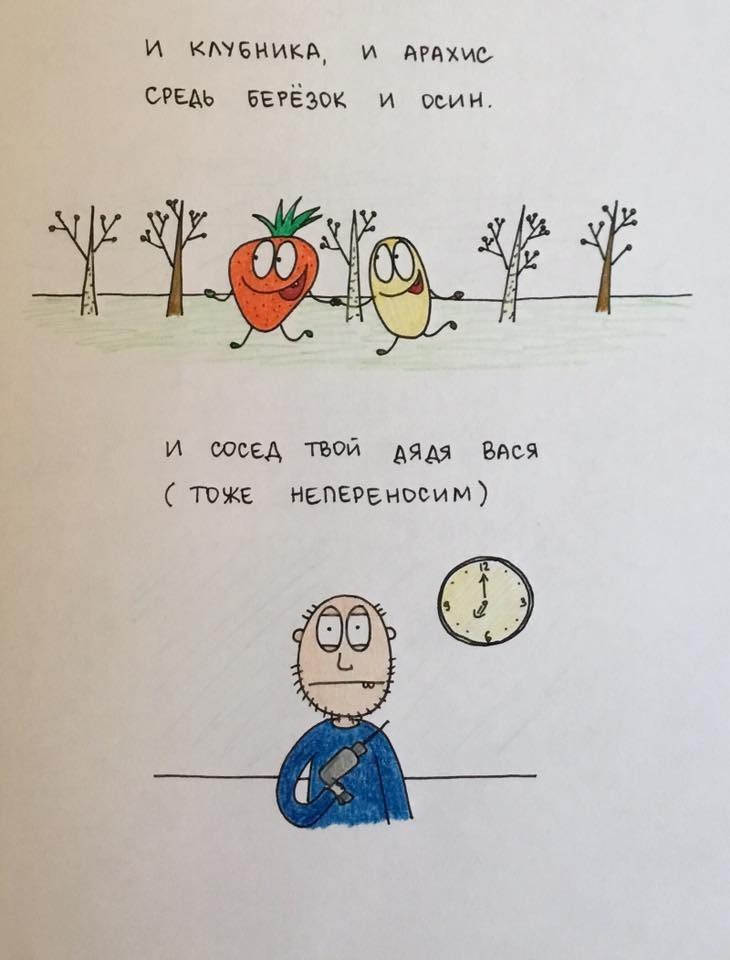 И КЛУБНИКА, И АРАХИС
СРЕДЬ БЕРЁЗОК И ОСИН.
И СОСЕД ТВОЙ ДЯДЯ ВАСЯ
(ТОЖЕ НЕПЕРЕНОСИМ)
12
9
3
6